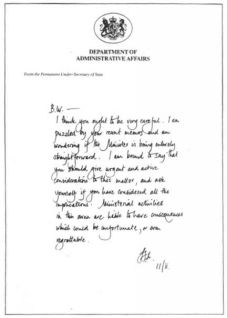 DEPARTMENT OF
ADMINISTRATIVE AFFAIRS
From the Permanent Under-Secretary of State
B.W. —
I think you ought to be very careful. I am
puzzled by your recent memos and am
wondering if the Minister is being entirely
straightforward. I am bound to say that
you should give urgent and active
consideration to this matter, and ask
yourself if you have considered all the
implications. Ministerial activities
in this area are liable to have consequences
which could be unfortunate, or even
regrettable.